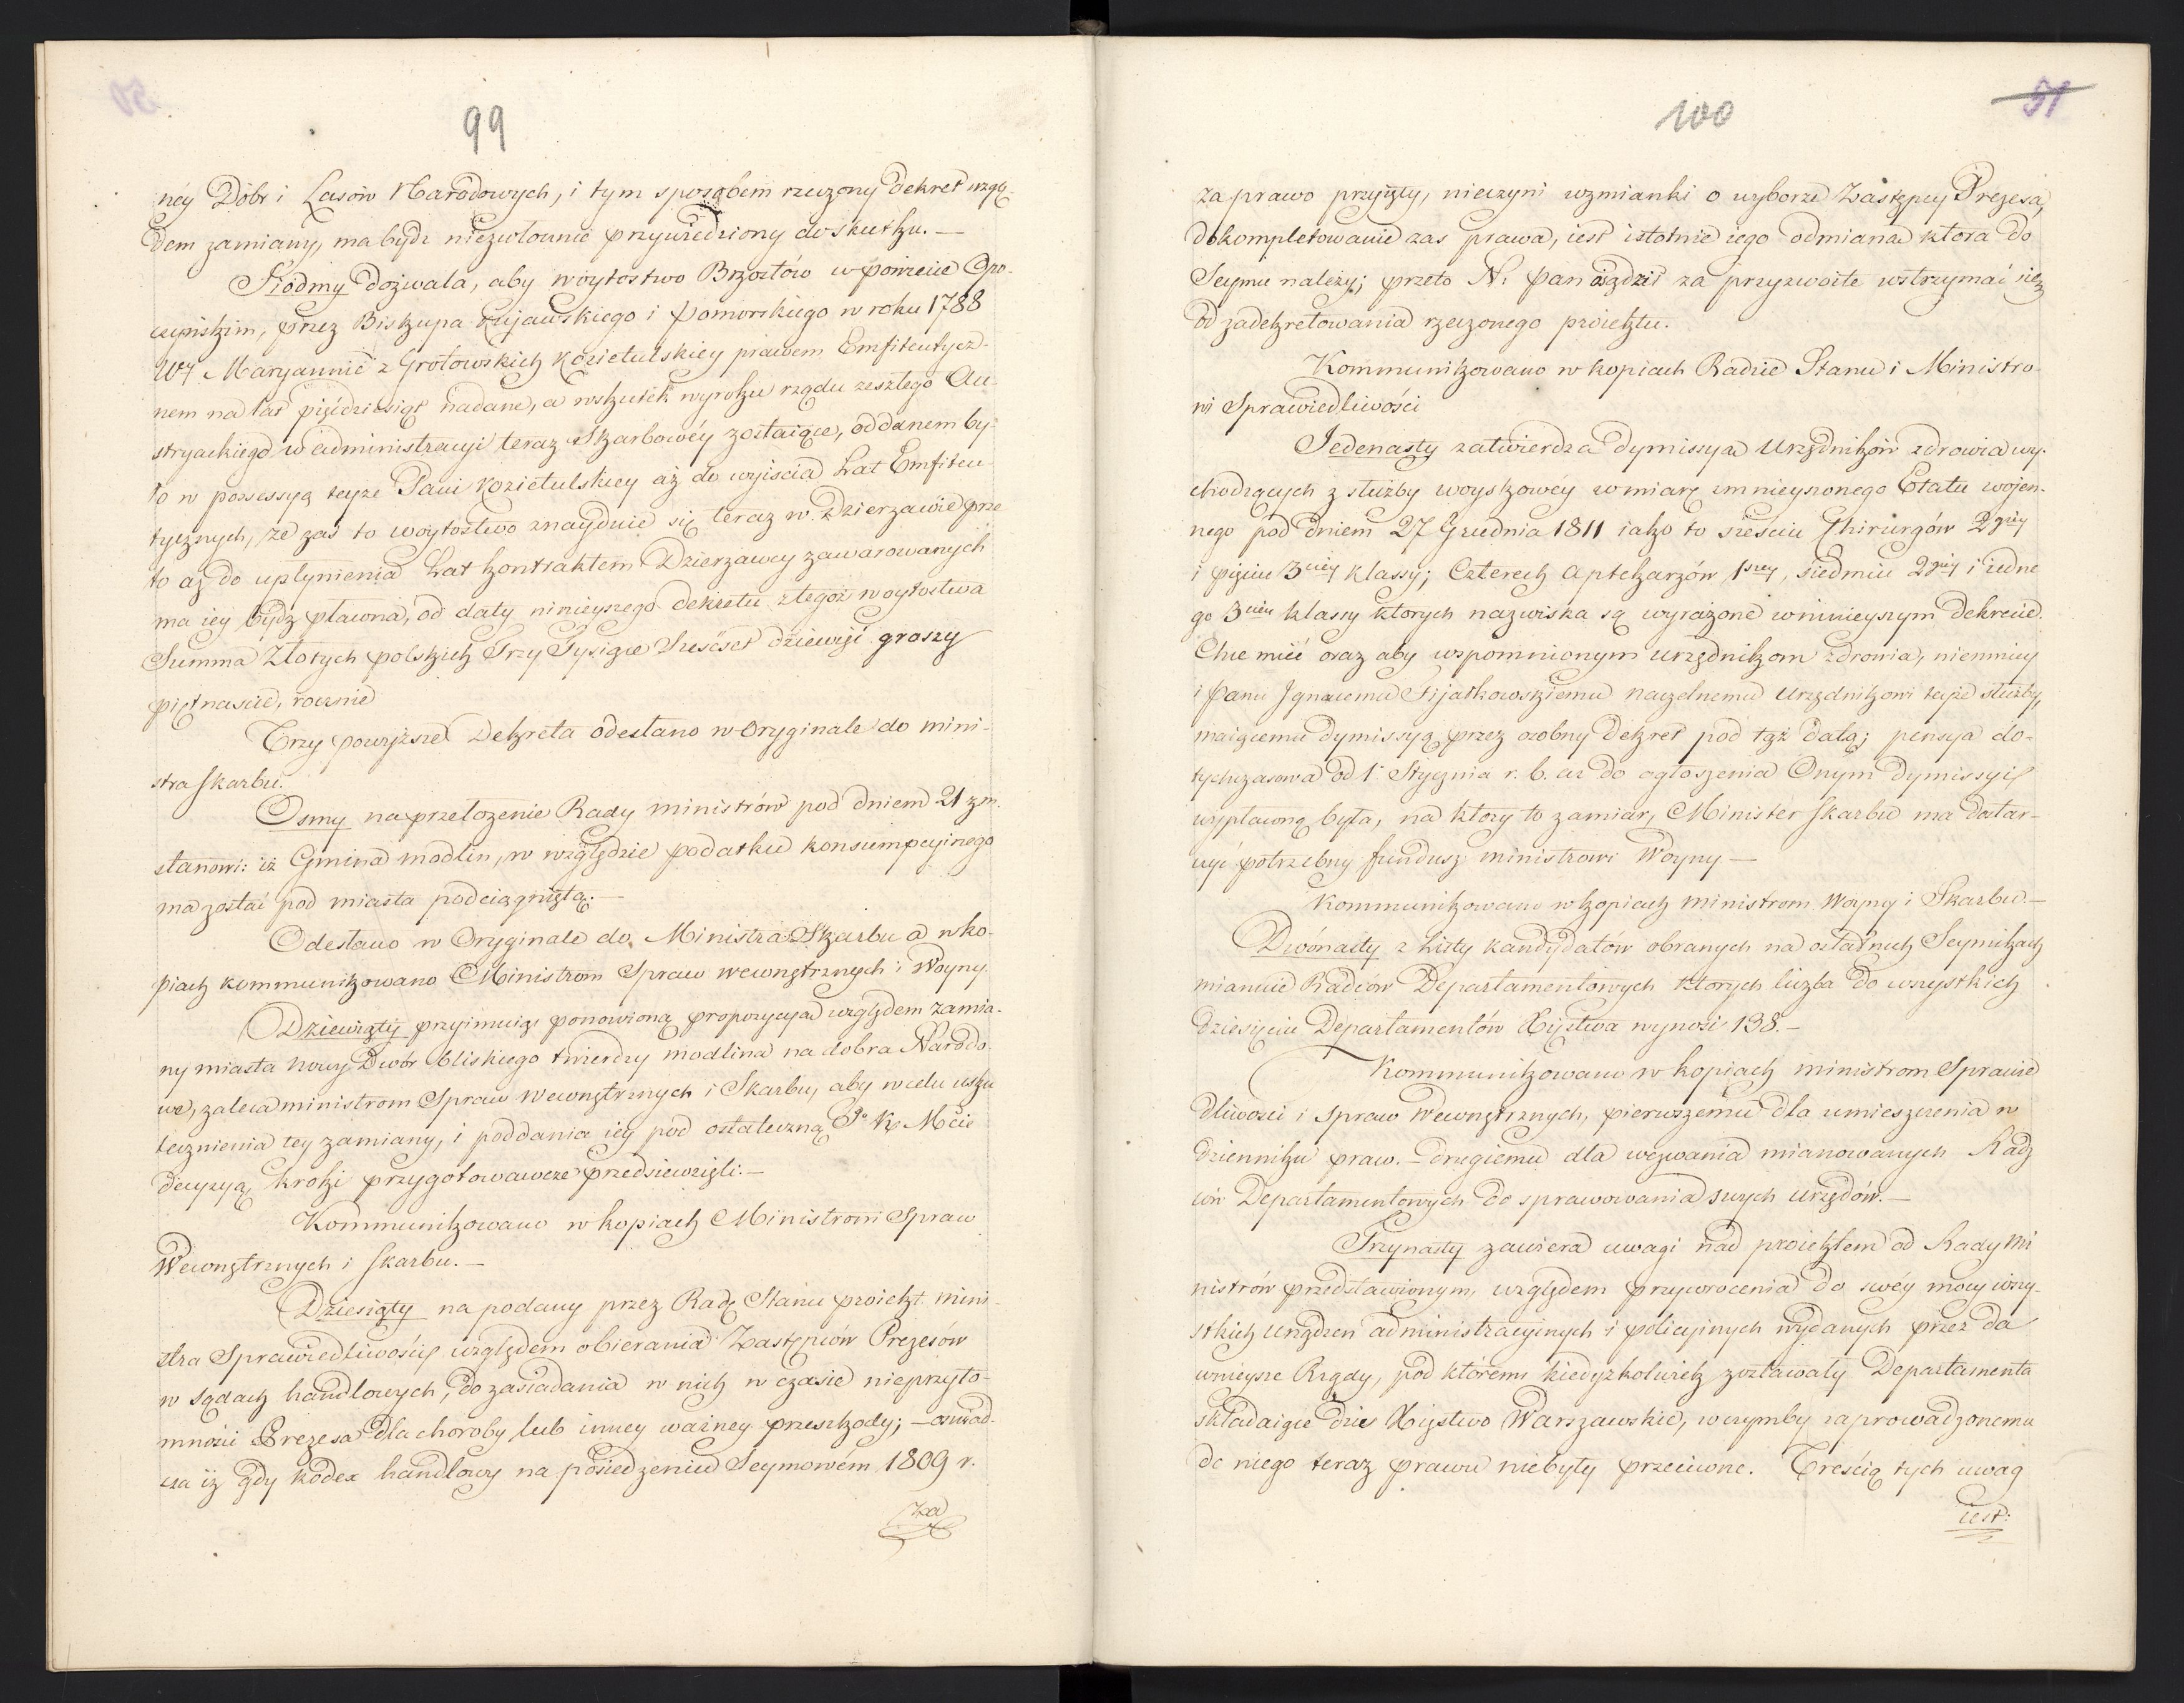 99
néy Dóbr i Lasów Narodowych, i tym sposobem rzeczony dekret wzglę-
dem zamiany, ma bydz niezwłocznie przywiedziony do skutku. —
Siódmy dozwala, aby woytostwo Brzoztów w powiecie Opo-
czyńskim, przez Biskupa Kujawskiego i Pomorskiego w roku 1788
Maryannie z Grotowskich Kozietulskiey prawem Emfiteutycz-
nem na lat pięćdziesiąt nadane, a wskutek wyroku rządu zeszłego Au-
stryackiego w administracyi teraz Skarbowéy zostaiące, oddanem by-
ło w possessyą teyże Pani Kozietulskiey aż do wyiscia Lat Emfiteu-
tycznych, że zaś to woytostwo znayduie się teraz w Dzierzawie prze-
to aż do upłynienia Lat kontraktem Dzierzawcy zawarowanych
ma iey bydz płacona, od daty ninieyszego dekretu z tegoż woytostwa
Summa Złotych polskich Trzy Tysiące Sześćset dziewięć groszy
piętnaście, rocznie
Trzy powyższe Dekreta odesłano w Oryginale do mini-
stra skarbu.
Osmy na przełożenie Rady ministrów pod dniem 21 z. m.
stanowi: iż Gmina modlin, w względzie podatku konsumpcyinego
ma zostać pod miasta podciągniętą. —
Odesłano w Oryginale do Ministra Skarbu a w ko-
piach kommunikowano Ministrom Spraw wewnętrznych i Woyny.
Dziewiąty przyimuiąc ponowioną propozycya względem zamia-
ny miasta Nowy Dwór bliskiego twierdzy modlina na dobra Narodo-
we, zaleca ministrom Spraw wewnętrznych i Skarbu, aby w celu usku-
tecznienia tey zamiany, i poddania iéy pod ostateczną J. K. Mci
decyzyą kroki przygotowawcze przedsiewzięli. —
Kommunikowano w kopiach Ministrom Spraw
Wewnętrznych i skarbu. —
Dziesiąty na podany przez Radę Stanu proiekt mini-
stra Sprawiedliwości względem obierania Zastępców Prezesów
w sądach handlowych, do zasiadania w nich w czasie nieprzyto-
mności Prezesa dla choroby lub inney ważney przeszkody; — oświad-
cza iż gdy kodex handlowy na posiedzeniu Seymowém 1809 r.
Za
100
51
za prawo przyięty, nieczyni wzmianki o wyborze Zastępcy Prezesa,
dokompletowanie zas prawa, iest istotnie iego odmiana ktora do
Seymu należy; przeto N. Pan osądził za przyzwoite wstrzymać się
od zadekretowania rzeczonego proiektu.
Kommunikowano w kopiach Radzie Stanu i Ministro-
wi Sprawiedliwości
Jedenasty zatwierdza dymissya Urzędników zdrowia wy-
chodzących z służby woyskowey w miarę zmnieyszonego Etatu wojen-
nego pod dniem 27 Grudnia 1811 iako to sześciu Chirurgów 2giey
i pięciu 3ciey klassy; Czterech Aptekarzów 1szey, siedmiu 2giey i iedne-
go 3ciey klassy ktorych nazwiska są wyrażone w ninieyszym dekrecie.
Chce mieć oraz aby wspomnionym urzędnikom zdrowia, niemniey
i Panu Ignacemu Fijatkowskiemu naczelnemu Urzędnikowi teyże służby,
maiącemu dymissyą przez osobny dekret pod tąż datą; pensya do-
tychczasowa od 1. Stycznia r. b. aż do ogłoszenia Onym dymissyi
wypłaconą była, na który to zamiar, Minister skarbu ma dostar-
czyć potrzebny fundusz ministrowi Woyny —
Kommunikowano w kopiach ministrom Woyny i Skarbu. —
Dwónasty z listy kandydatów obranych na ostatnich Seymikach
mianuie Radców Departamentowych ktorych liczba do wszystkich
dziesięciu Departamentów Xięstwa wynosi 138. —
Kommunikowano w kopiach ministrom Sprawie-
dliwości i Spraw Wewnętrznych, pierwszemu dla umieszczenia w
dzienniku praw. — drugiemu dla wezwania mianowanych Radz-
ców Departamentowych do sprawowania swych urzędów. —
Trzynasty zawiera uwagi nad proiektem od Rady Mi-
nistrów przedstawionym, względem przywrócenia do swéy mocy wszy-
stkich urządzeń administracyinych i policyinych wydanych przez da-
wnieysze Rządy, pod któremi kiedyżkolwiek zostawały Departamenta
składaiące dziś Xięstwo Warszawskie, w czymby zaprowadzonemu
do niego teraz prawu niebyły przeciwne. Treścią tych uwag
iest: